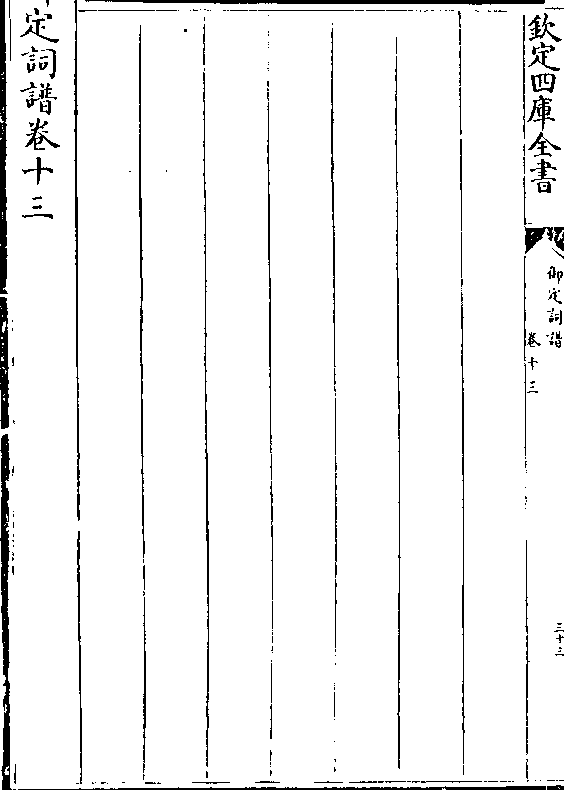 欽定四庫全書
御定詞譜
卷十三
三十三
定詞譜卷十三